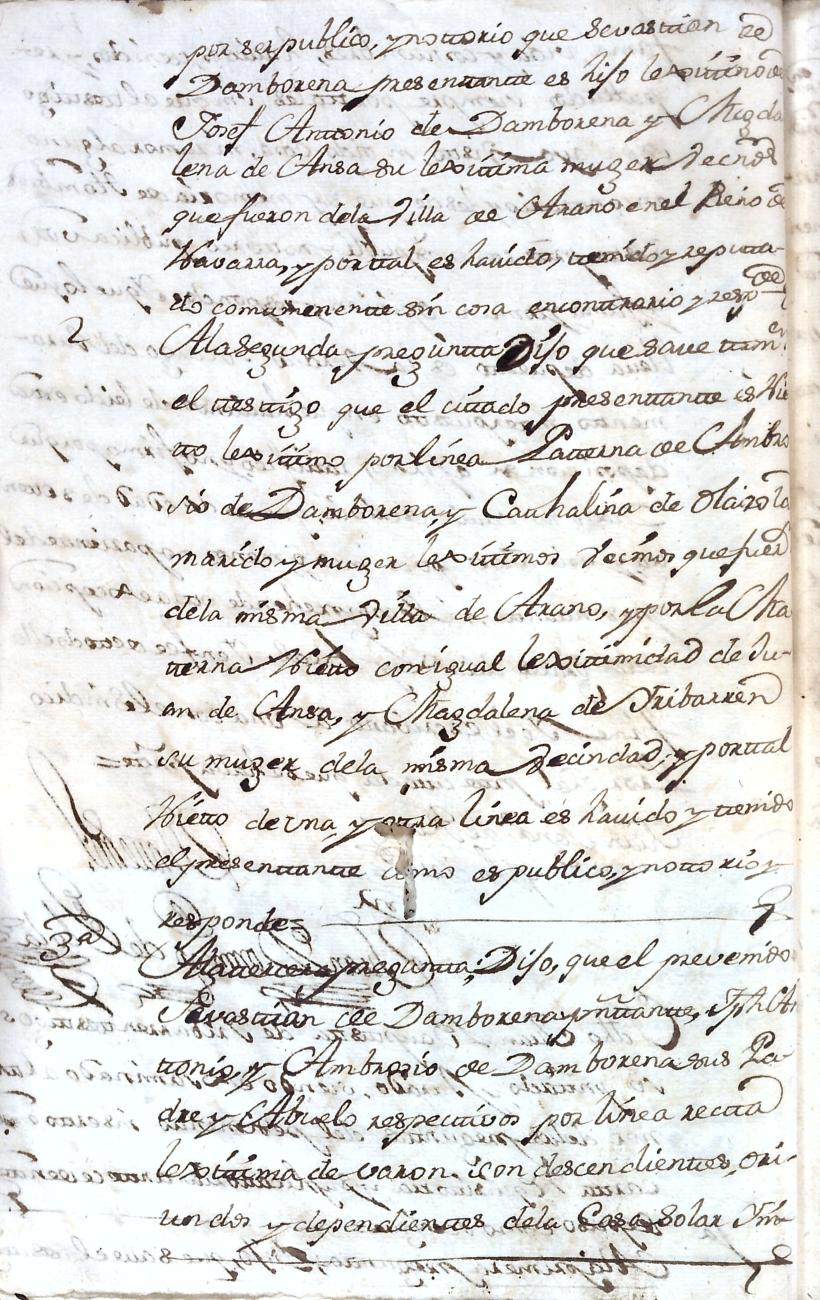 por ser publico, y nottorio que Sevasttian de
Damborena presenttante es hijo lexittimo de
Josef Anttonio de Damborena y Magda
lena de Ansa su lexittima muger Vecinos
que fueron dela Villa de Arano en el Reino de
Navarra, y por ttal es havido, ttenido y reputta-
do comunmentte sin cosa encontrario y respde
2 Ala segunda preguntta Dijo que save ttamvien
el ttesttigo que el cittado presenttantte es Nie
tto lexittimo por linea Patterna de Ambro
sio de Damborena, y Cathalina de Olaizola
marido y muger lexittimos Vecinos que fueron
dela misma Villa de Arano, y por la Ma
tterna Nietto con igual lexittimidad de Ju-
an de Ansa, y Magdalena de Iribarren
su muger dela misma Vecindad, y por ttal
Nietto de una y ottra linea es havido y ttenido
el presenttantte como es publico, y nottorio y
responde
3a Ala ttercera preguntta, Dijo, que el prevenido
Sevasttian de Damborena pnttantte, Jph An
ttonio, y Ambrosio de Damborena sus Pa-
dre y Abuelo respecttivos por linea rectta
lexittima de varon son descendienttes, ori-
undos y dependienttes dela Casa Solar